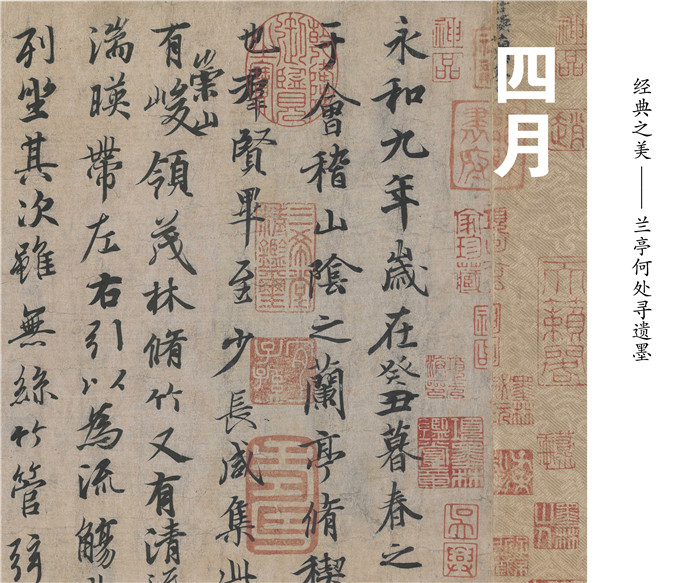 四月
经典之美——兰亭何处寻遗墨
永和九年歲在癸丑暮春之
于會稽山陰之蘭亭脩稧
也羣賢畢至少長咸集此
有崇山峻領茂林脩竹又有清流
湍暎帶左右引以為流觴
列坐其次雖無絲竹管弦
神品
書府
家珍藏
吳興
神品
趙
天籟閣